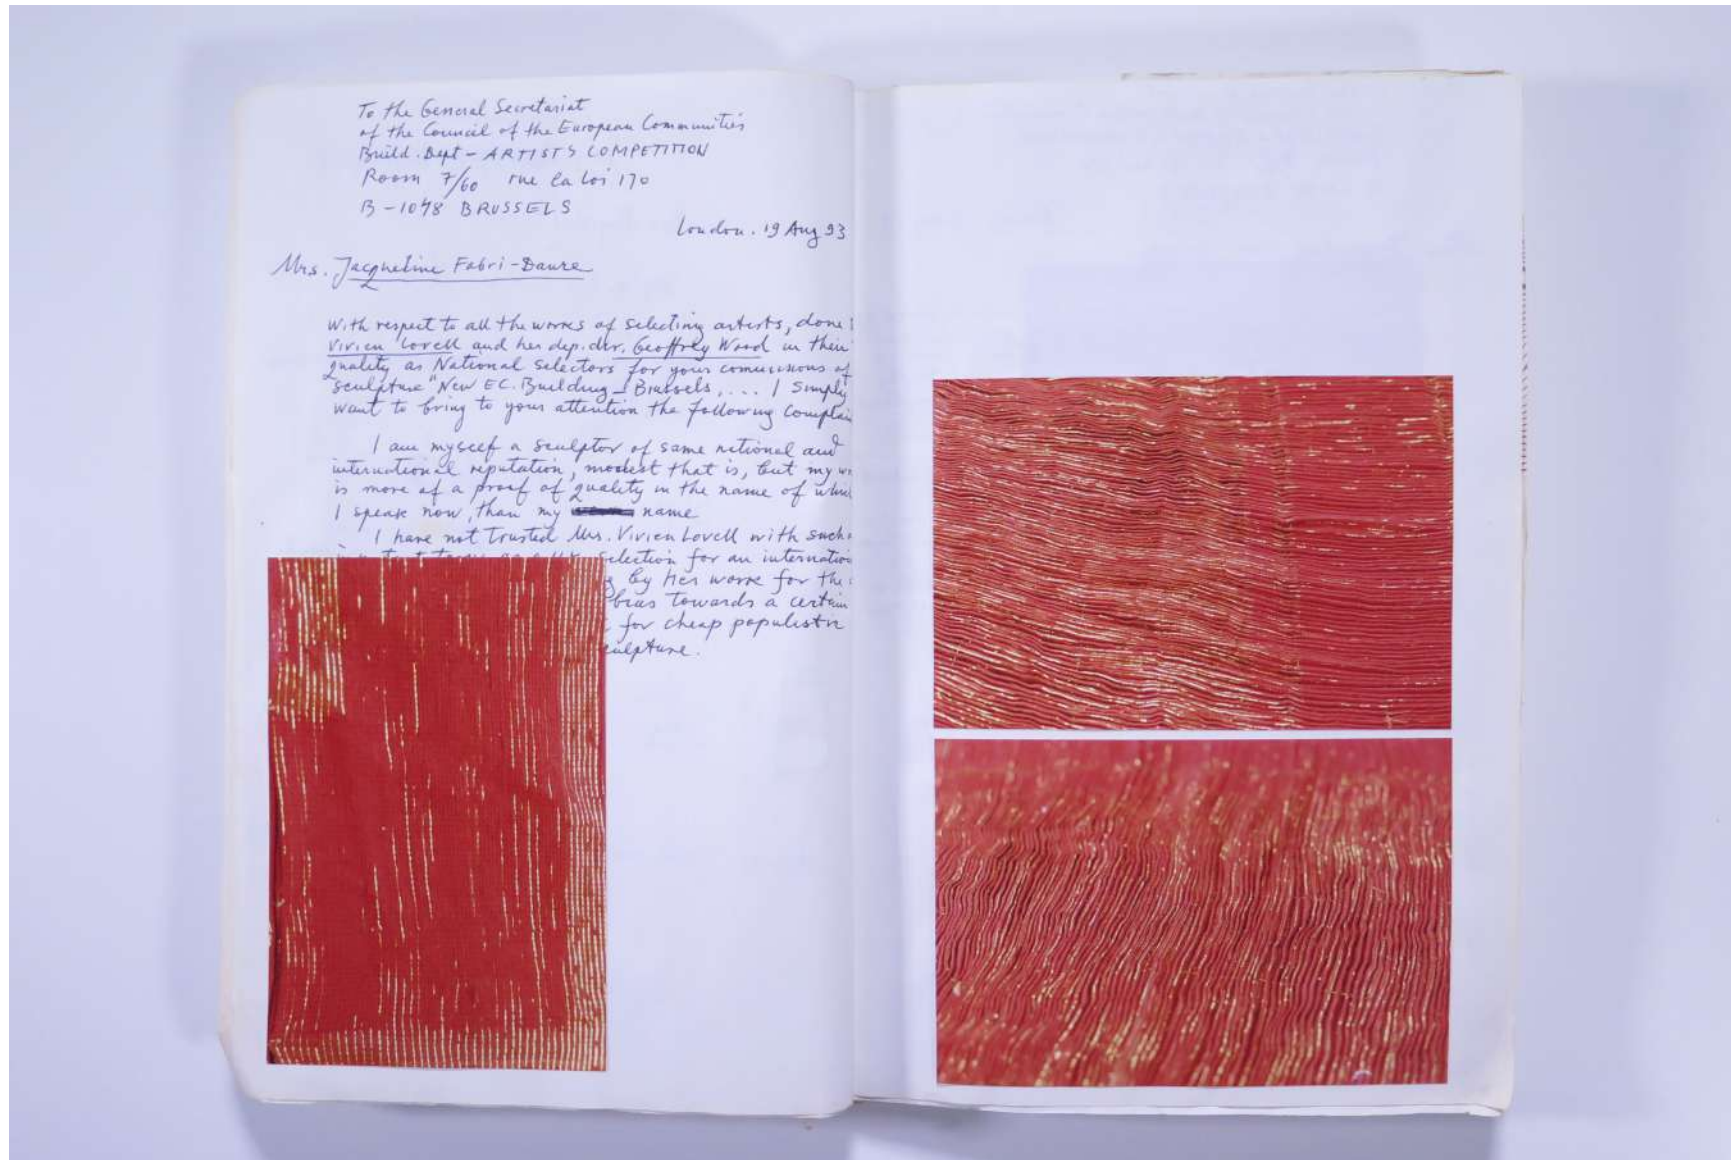 To the General Secretariat
of the Council of the European Communities
Build. Dept – ARTISTS COMPETITION
Room 7/60 rue la Loi 170
B-1048 BRUSSELS
London. 19 Aug 93
Mrs. Jacqueline Fabri-Daure
With respect to all the works of selecting artists, done
Vivien Lovell and her dep. dir. Geoffrey Wood in their
quality as National Selectors for your comissions of
sculpture "New EC. Building – Brussels, .... I simply
want to bring to your attention the following complain
I am myself a sculptor of some national and
international reputation, modest that is, but my
is more of a proof of quality in the name of
I speak now, than my name
I have not trusted Mrs. Vivien Lovell with such
selection for an internatio
by her work for the
bias towards a certain
for cheap populistic
sculpture.